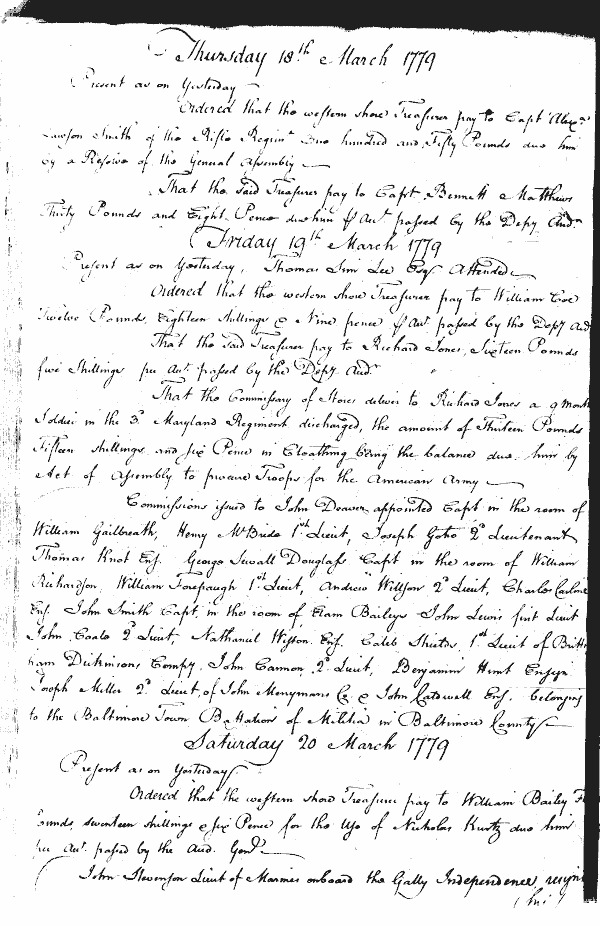 Thursday 18th March 1779
Present as on Yesterday
Ordered that the western shore Treasurer pay to Capt Alexr
Lawson Smith of the Rifle Regimt two hundred and Fifty Pounds due him
by a Resolve of the General Assembly
That the said Treasurer pay to Capt Bennett Matthews
Thirty Pounds and Eight Pence due him Acct passed by the Depy Audr
Friday 19th March 1779
Present as on Yesterday, Thomas Sim Lee Esqr Attended
Ordered that the western shore Treasurer pay to William Coe
Twelve Pounds, Eighteen shillings & Nine pence Acct passed by the Depy Aud
That the said Treasurer pay to Richard Jones, Sixteen Pounds
five Shillings per Acct passed by the Depy Audr
That the Commissary of Stores deliver to Richard Jones a 9 Month
Soldier in the 3d Maryland Regiment discharged, the amount of Thirteen Pounds
Fifteen shillings and six Pence in Cloathing being the balance due him by
Act of Assembly to procure Troops for the American Army
Commissions issued to John Deaver appointed Capt in the room of
William Gailbreath, Henry McBride 1st Lieut, Joseph 2d Lieutenant
Thomas Knot Ens. George Sewall Douglass Capt in the room of William
Richardson, William Forepaugh 1st Lieut, Andrew Willson 2d Lieut, Charles
Ens. John Smith Capt. in the room of Sam Baileys John Lewis first Lieut
John Coale 2d Lieut, Nathaniel Ens. Caleb Shields, 1st Lieut of Britt
ham Dickinsons Compy, John Cannon, 2d Lieut, Benjamin Hunt Ensign
Joseph Miller 2d Lieut, of John Merrymans Co. & John Ens. belonging
to the Baltimore Town Battalion of Militia in Baltimore County
Saturday 20 March 1779
Present as on Yesterday
Ordered that the western shore Treasurer pay to William Bailey
ounds, seventeen shillings & six Pence for the Use of Nicholas Kurtz due him
per Acct passed by the Aud. Genl
John Stevenson Lieut of Marines onboard the Gally Independence resigns
his